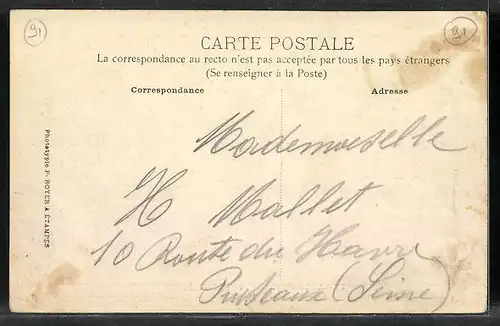 91
91
CARTE POSTALE
La correspondance au recto n'est pas acceptée par tous les pays étrangers
(Se renseigner à la Poste)
Correspondance
Adresse
Mademoiselle
H Mallet
10 Route du Havre
Puteaux (Seine)
Phototypie Pr. ROYER A ÉTAMPES